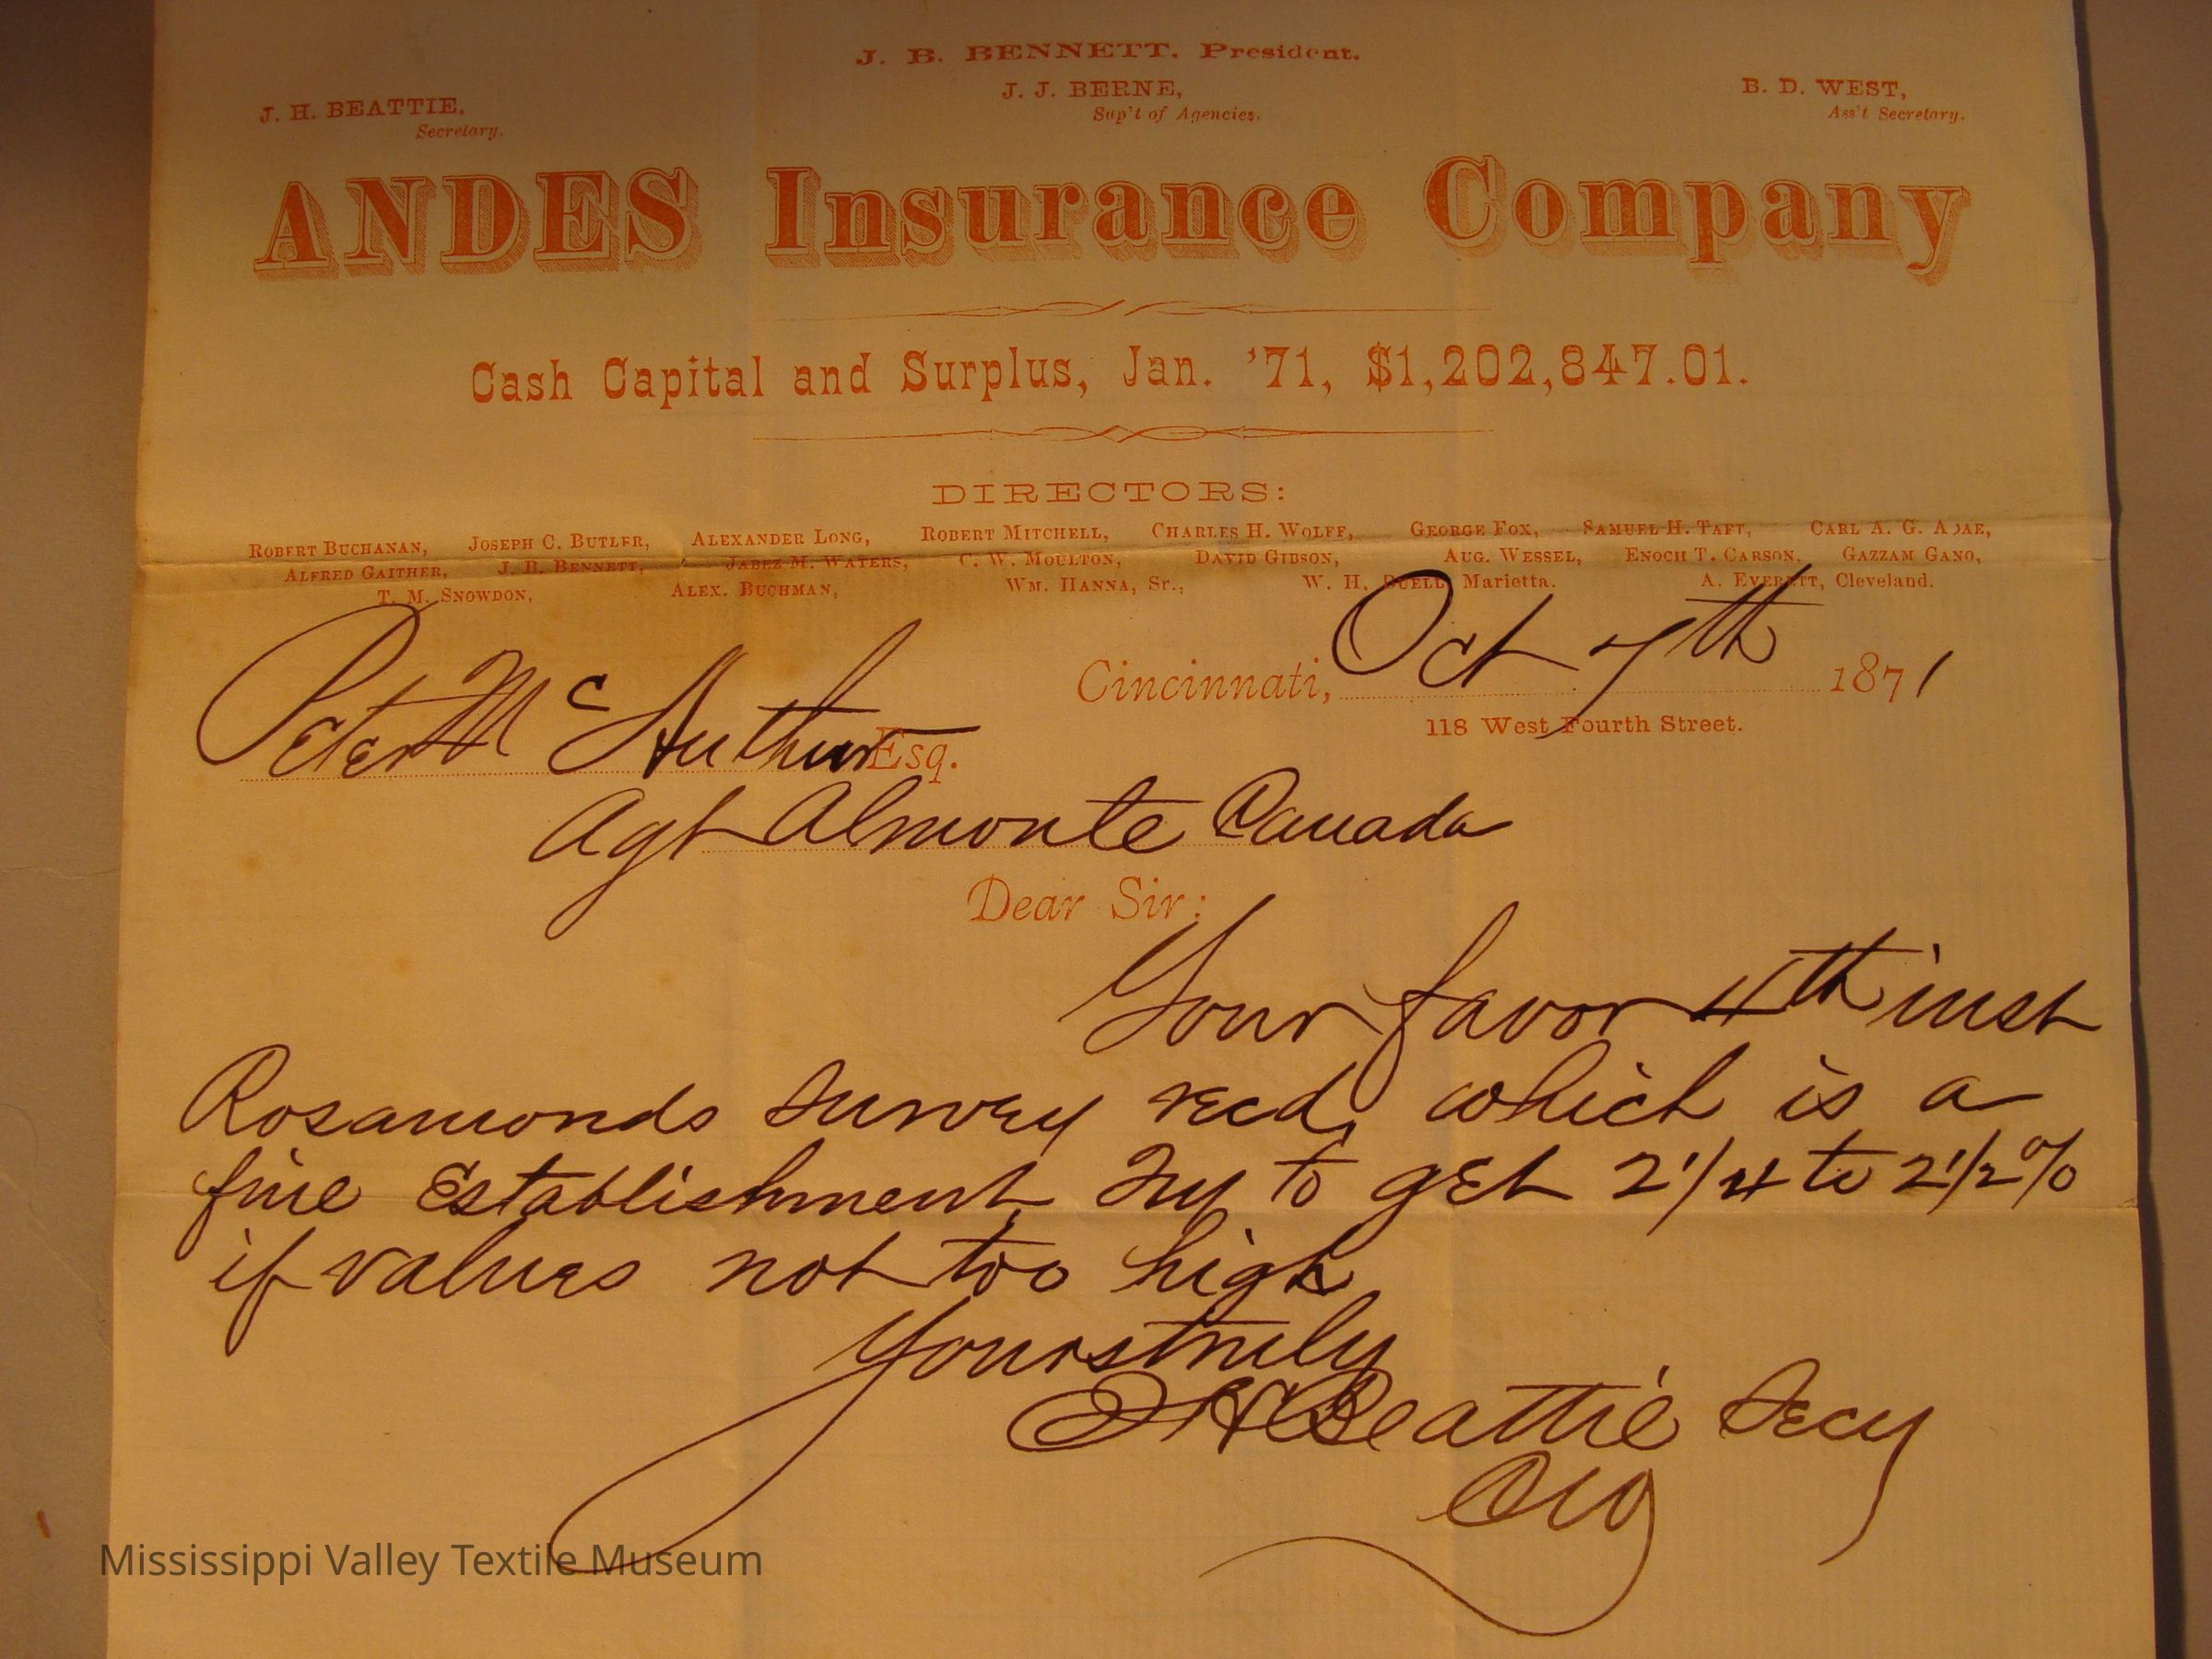 J. B. BENNETT. President.
J. H. BEATTIE, J. J. BERNE, B. D. WEST,
Secretary. Sup't of Agencies. Ass't Secretary.
ANDES Insurance Company
Cash Capital and Surplus, Jan. '71, $1,202,847.01.
DIRECTORS:
ROBERT BUCHANAN, JOSEPH C. BUTLER, ALEXANDER LONG, ROBERT MITCHELL, CHARLES H. WOLFF, GEORGE FOX, SAMUEL H. TAFT, CARL A. G. ADAE,
ALFRED GAITHER, J. B. BENNETT, JABEZ M. WATERS, C. W. MOULTON, DAVID GIBSON, AUG. WESSEL, ENOCH T. CARSON, GAZZAM GANO,
T. M. SNOWDON, ALEX. BUCHMAN, WM. HANNA, Sr., W. H. BUELL, Marietta. A. EVERETT, Cleveland.
Cincinnati, Oct 7th 1871
118 West Fourth Street.
Peter McArthur Esq.
Agt Almonte Canada
Dear Sir:
Your favor 4th inst
Rosamonds survey recd, which is a
fine Establishment, Try to get 2 1/4 to 2 1/2 %
if values not too high
Yours truly
J H Beattie Secy
Mississippi Valley Textile Museum